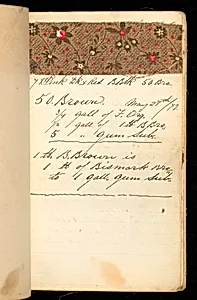 78 Pink 2 K & Red B Blk 50 Bro
50. Brown. May 28th/78
3/4 gall of F. Og.
1/2 1 gall of 1 th B. Bro.
5 " gum Sub.
1 th B. Brown is
1 # of Bismark Bro
to 4 galls gum Sub.